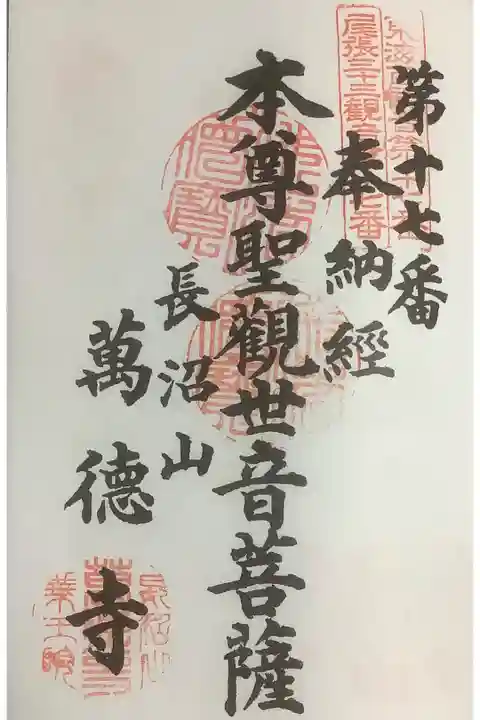 第十七番
奉納經
本尊聖觀世音菩薩
長沼山
萬德寺
尾張三十三觀音
番
長沼山
藥王院